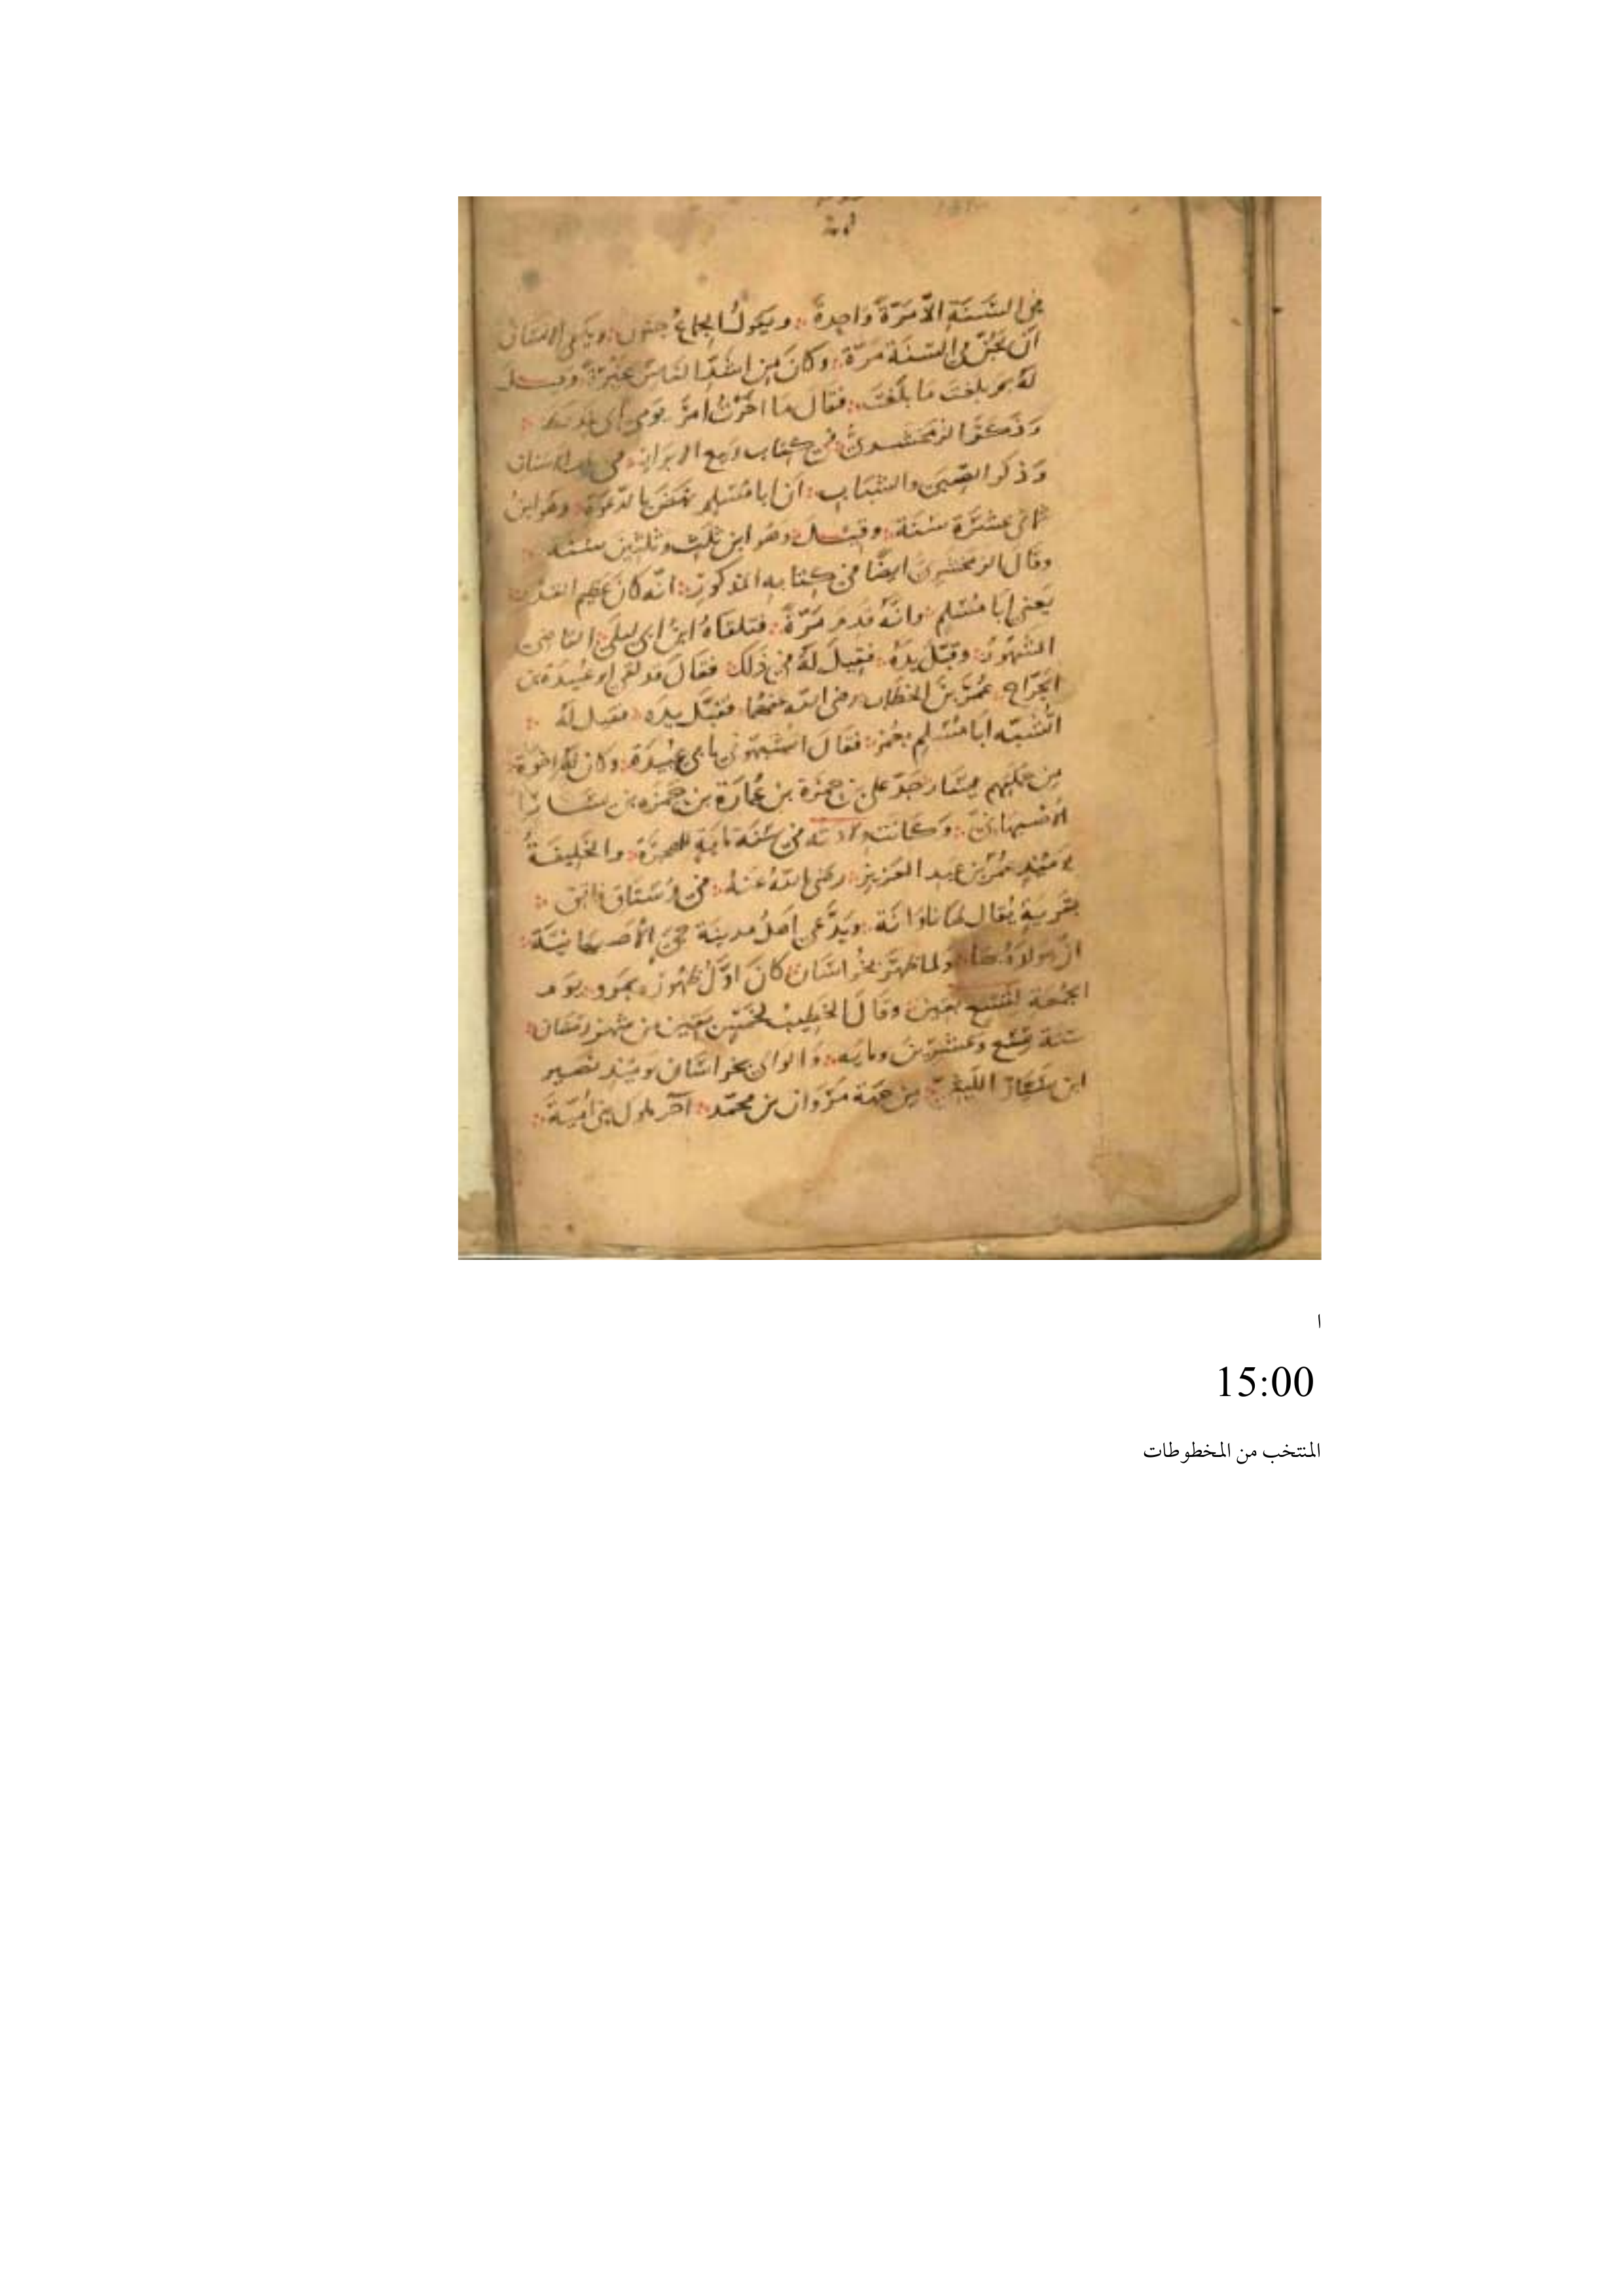 في السَّنَةِ الّا مَرّةً وَاحِدةً ويَقولُ الجِماعُ جنون ويكفي الانسان
ان يُجنَّ في السّنَة مَرّة وكانَ مِن اشَدِّ الناسِ غَيْرَةً وقيل
لهُ بمَ بلغتَ مَا بَلَغتَ فقَال مَا اخَّرْتُ امرَ يَومي الى غد
وَذَكَرَ الزمَخشريّ في كتاب ربيع الابرَار في الاسنان
وَذكر الصّبَى والشبَاب اَن ابا مُسْلِم نهَضَ بالدّعوَة وهو ابن
ثماني عشرَة سَنَة وقيْل وَهُو ابن ثلث وثلثين سنة
وقَال الزمخشري ايضًا في كتابه المذكور انّه كان عَظِيم القدر
يَعني ابَا مُسْلِم وانّهُ قدم مَرّةً فتلقاهُ ابنُ ابي ليلَى القاضي
المشهُورُ وقبّل يدَهُ فقِيلَ لهُ في ذَلك فقَالَ قد لقي ابو عُبيدَة بن
الجَرّاح عُمَرَ بنَ الخطّاب رضى الله عنهُما فقبَّل يده فقيل لهُ
اتُشبّه ابَا مُسْلِم بعُمَر فقَالَ اتُشبّهوني بابي عبُيدَة وكان لهُ اخوَة
مِن جُملتِهم يسَار جَدّ علي بن حمزَة بن عُمارَة بن حَمزه بن يسَار
الاصْبهاني وَكَانت ولادته في سَنَة ماية للهجرَة والخَليفَةُ
يومَئِذٍ عُمَرُ بن عَبد العَزيز رضي اللهُ عَنهُ في رُستاق فاتق
بقَريَةٍ يُقال لها ناوَانَة ويَدَّعي اهلُ مدينَة جَيّ الاصبهانيّة
انّ مولدَهُ بها ولما ظهَرَ بخراسَان كان اوّلُ ظهُوره بمَرو يوَم
الجمُعَة لتسع بقين وقَالَ الخطيبُ لخمَسٍ بقَين من شهر رمضان
سَنَة تسْع وَعشرينَ ومايه وَالوالي بخراسَان يومَئذٍ نصَر
ابن سَيّار اللّيثيّ مِن جهَة مَرْوَان بن محمّد آخر ملوك بني اُميَّة
ا
15:00
المنتخب من المخطوطات